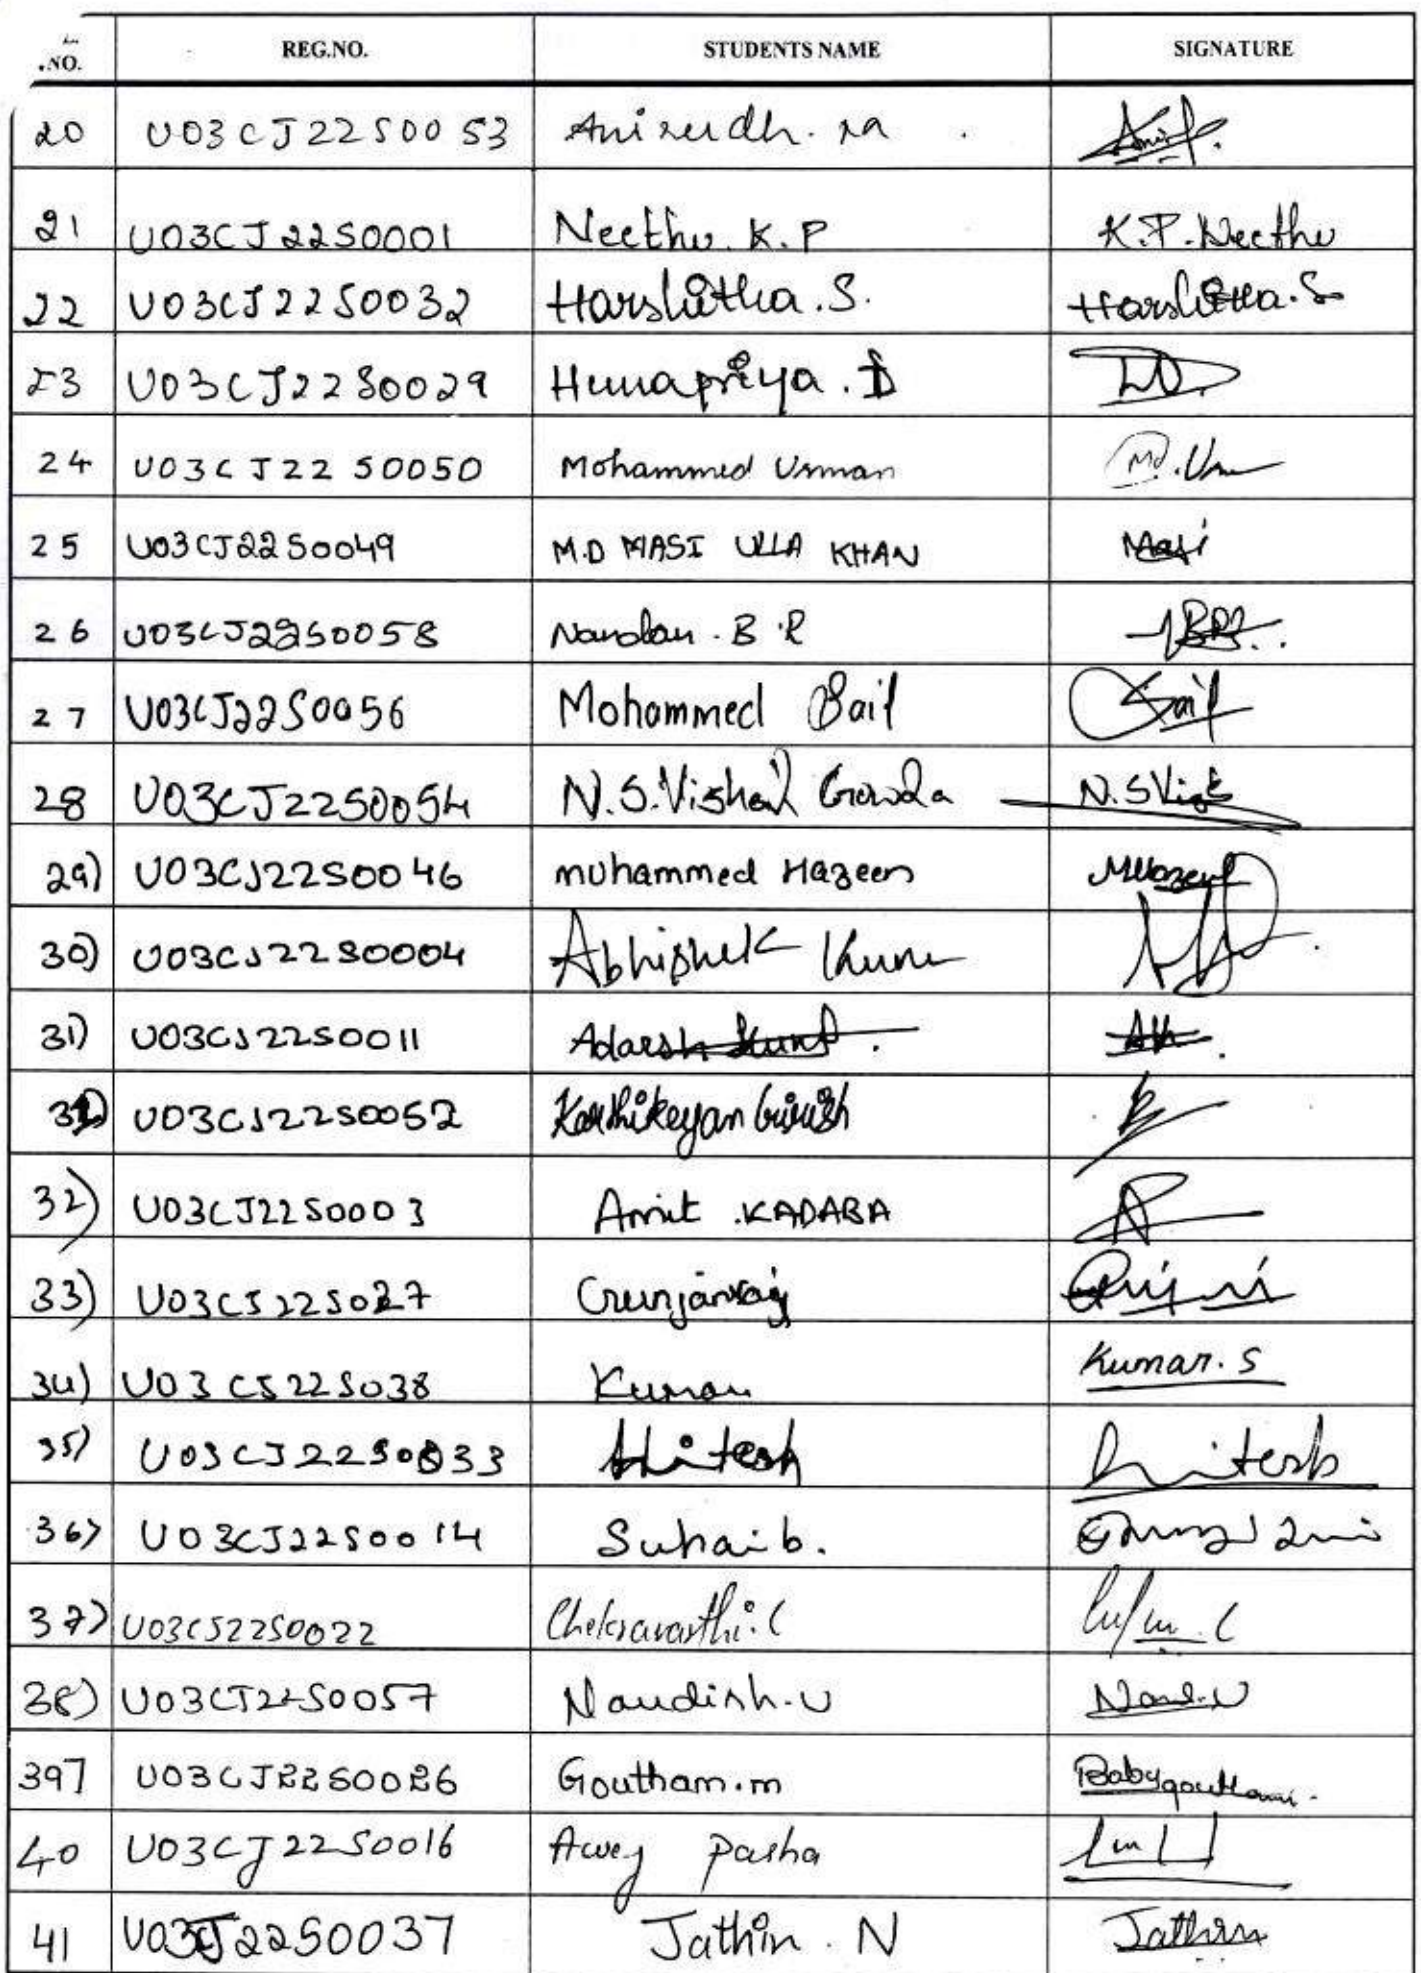 .NO. REG.NO. STUDENTS NAME SIGNATURE
20 U03CJ22S0053 Anirudh. ra
21 U03CJ22S0001 Neethu. K.P K.P.Neethu
22 U03CJ22S0032 Harshitha.S. Harshitha.S
23 U03CJ22S0029 Hemapriya.D
24 U03CJ22S0050 Mohammed Usman Md.
25 U03CJ22S0049 M.D MASI ULLA KHAN Masi
26 U03CJ22S0058 Nandan.B.R
27 U03CJ22S0056 Mohammed Saif Saif
28 U03CJ22S0054 N.S.Vishal Gowda N.S
29) U03CJ22S0046 muhammed Hazeen
30) U03CJ22S0004 Abhishek
31) U03CJ22S0011 Adarsh
U03CJ22S0052 Karthikeyan Girish
32) U03CJ22S0003 Amit .KADABA
33) U03CJ22S027 Gunjanraj
34) U03CJ22S038 Kumar Kumar.S
35) U03CJ22S0033 Hitesh hitesh
36) U03CJ22S0014 Suhaib.
37) U03CJ22S0022 Chekravarthi.C
38) U03CJ22S0057 Nandish.U
39) U03CJ22S0026 Goutham.m Babygouthami.
40 U03CJ22S0016 Awej Pasha
41 U03CJ22S0037 Jathin.N Jathin